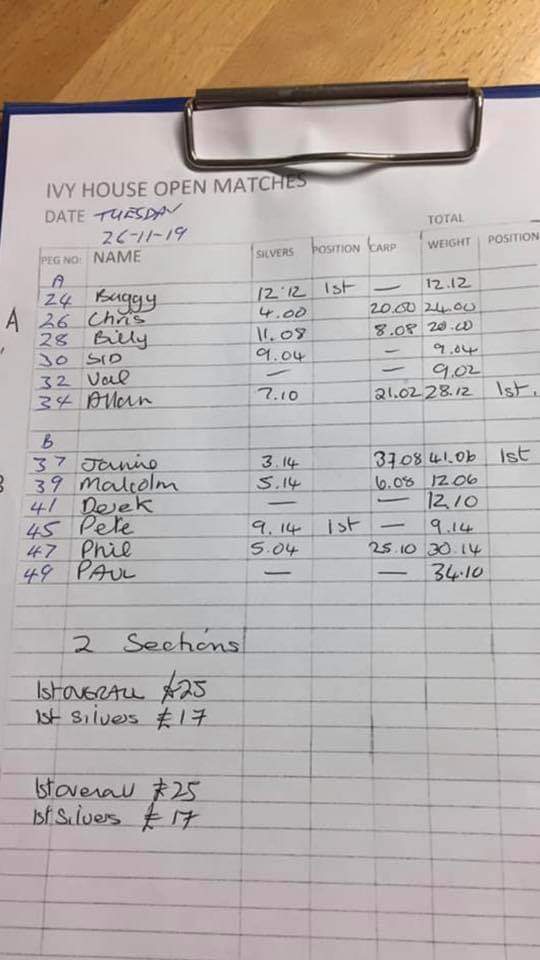 IVY HOUSE OPEN MATCHES
DATE TUESDAY
26-11-19
TOTAL
PEG NO: NAME SILVERS POSITION CARP WEIGHT POSITION
A
24 Buggy 12.12 1st — 12.12
A 26 Chris 4.00 20.00 24.00
28 Billy 11.08 8.08 20.00
30 SID 9.04 — 9.04
32 Val — — 9.02
34 Allan 7.10 21.02 28.12 1st.
B
37 3.14 37.08 41.06 1st
39 Malcolm 5.14 6.08 12.06
41 Derek — — 12.10
45 Pete 9.14 1st — 9.14
47 Phil 5.04 25.10 30.14
49 PAUL — — 34.10
2 Sections
1st OVERALL £25
1st Silvers £17
1st overall £25
1st Silvers £17